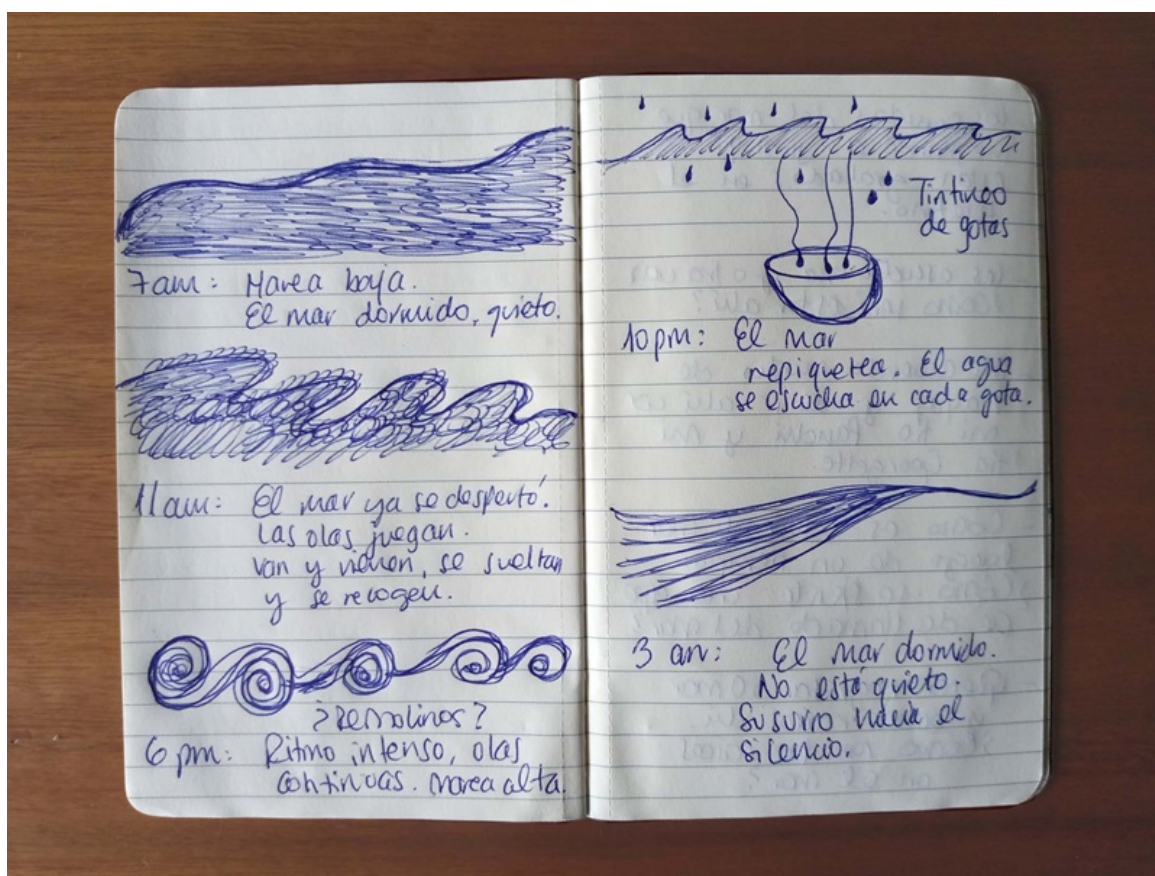 7am: Marea baja.
El mar dormido, quieto.
11am: El mar ya se despertó.
Las olas juegan.
van y vienen, se sueltan
y se recogen.
¿Remolinos?
6 pm: Ritmo intenso, olas
continuas. marea alta.
Tintineo
de gotas
10pm: El mar
repiquetea. El agua
se escucha en cada gota.
3 am: El mar dormido.
No está quieto.
Susurro hacia el
silencio.